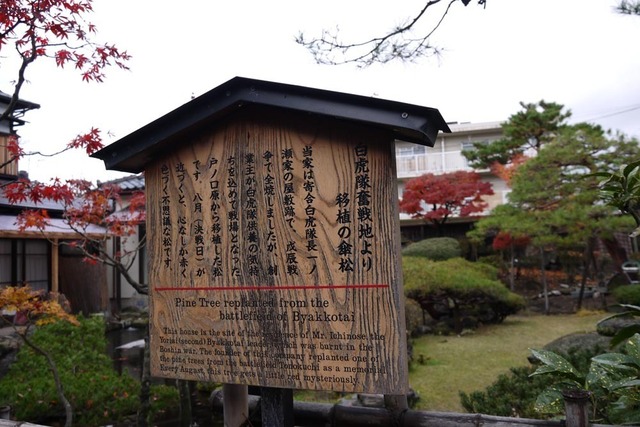 白虎隊奮戦地より
移植の傘松
当家は寄合白虎隊長一ノ
瀬家の屋敷跡で、戊辰戦
争で全焼しましたが、創
業主が白虎隊供養の気持
ちを込めて戦場となった
戸ノ口原から移植した松
です。八月（決戦日）が
近づくと、心なしか赤く
色づく不思議な松です。
Pine Tree replanted from the
battlefield of Byakkotai
This house is the site of the residence of Mr. Ichinose, the
Yoriai(second) Byakkotai leader, and was burnt in the
Boshin war. The founder of this company replanted one of
the pine trees from the battlefield Tonokuchi as a memorial.
Every August, this tree gets a little red mysteriously.